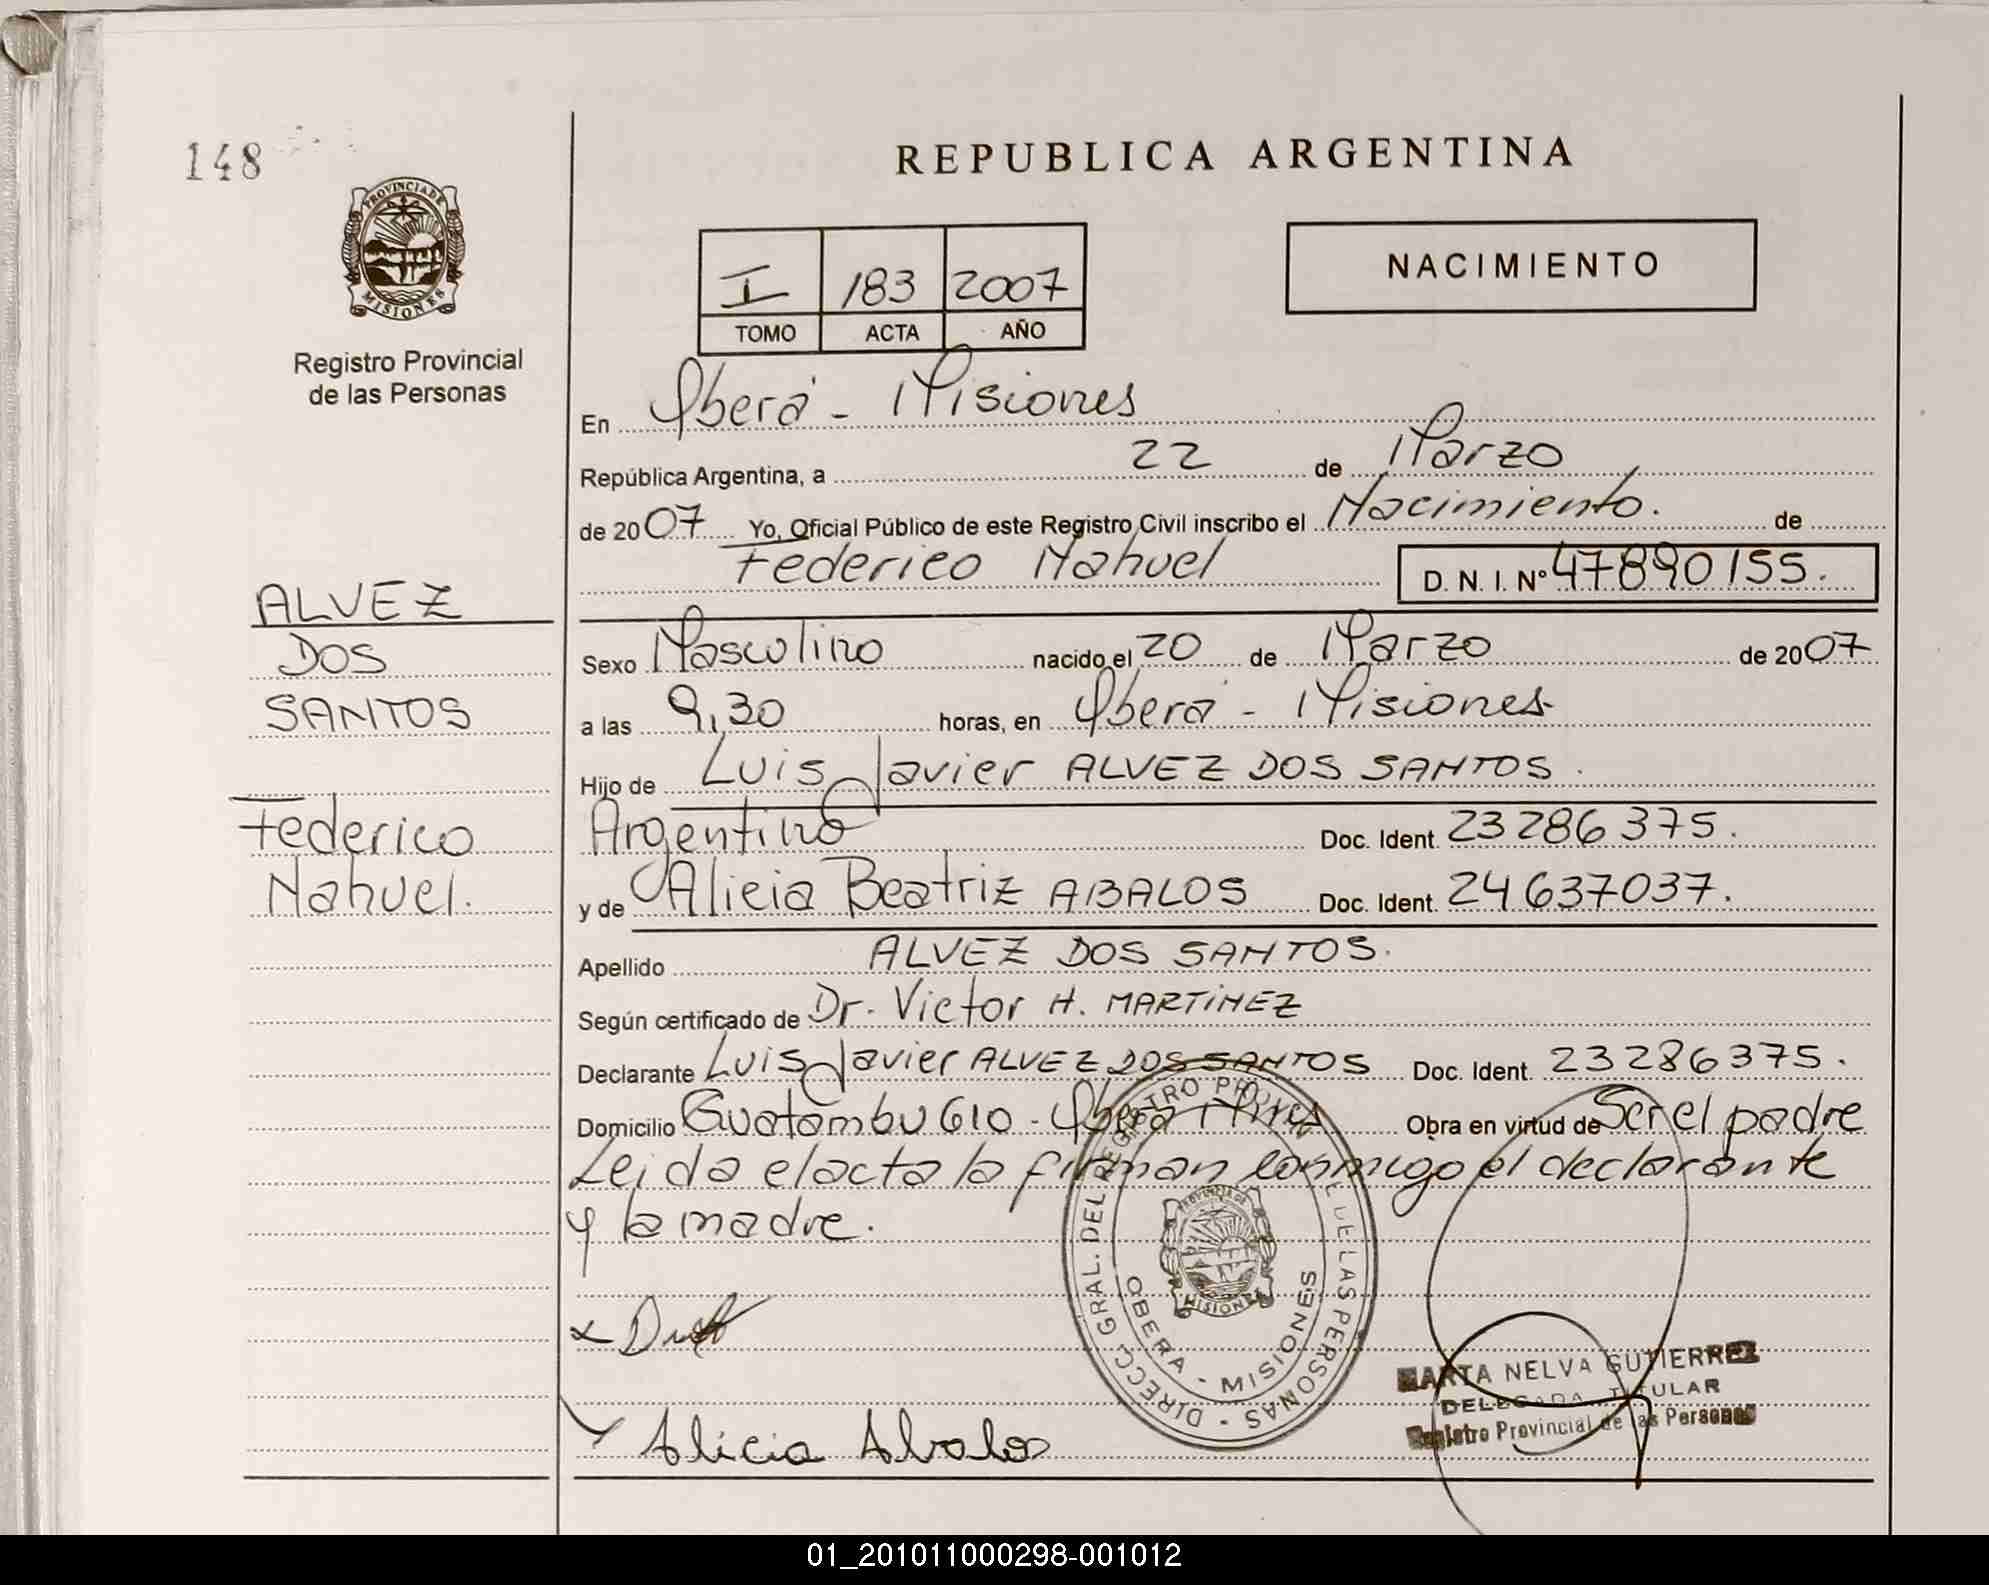 148
PROVINCIA DE
MISIONES
Registro Provincial
de las Personas
REPUBLICA ARGENTINA
I 183 2007
TOMO ACTA AÑO
NACIMIENTO
En Oberá - Misiones
República Argentina, a 22 de Marzo
de 2007 Yo, Oficial Público de este Registro Civil inscribo el Nacimiento. de
Federico Nahuel D. N. I. Nº 47890155.
ALVEZ
DOS
SANTOS
Federico
Nahuel.
Sexo Masculino nacido el 20 de Marzo de 2007
a las 9,30 horas, en Oberá - Misiones
Hijo de Luis Javier ALVEZ DOS SANTOS.
Argentino Doc. Ident. 23286375.
y de Alicia Beatriz ABALOS Doc. Ident. 24637037.
Apellido ALVEZ DOS SANTOS.
Según certificado de Dr. Victor H. MARTINEZ
Declarante Luis Javier ALVEZ DOS SANTOS Doc. Ident. 23286375.
Domicilio Guatambu 610 - Oberá Mnes Obra en virtud de Ser el padre
Leida el acta la firman conmigo el declarante
y la madre.
DIRECC. GRAL. DEL REGISTRO PROVIN DE LAS PERSONAS
PROVINCIA DE
MISIONES
OBERA - MISIONES
MARTA NELVA GUTIERREZ
DELEGADA TITULAR
Registro Provincial de las Personas
Alicia Abalos
01_201011000298-001012